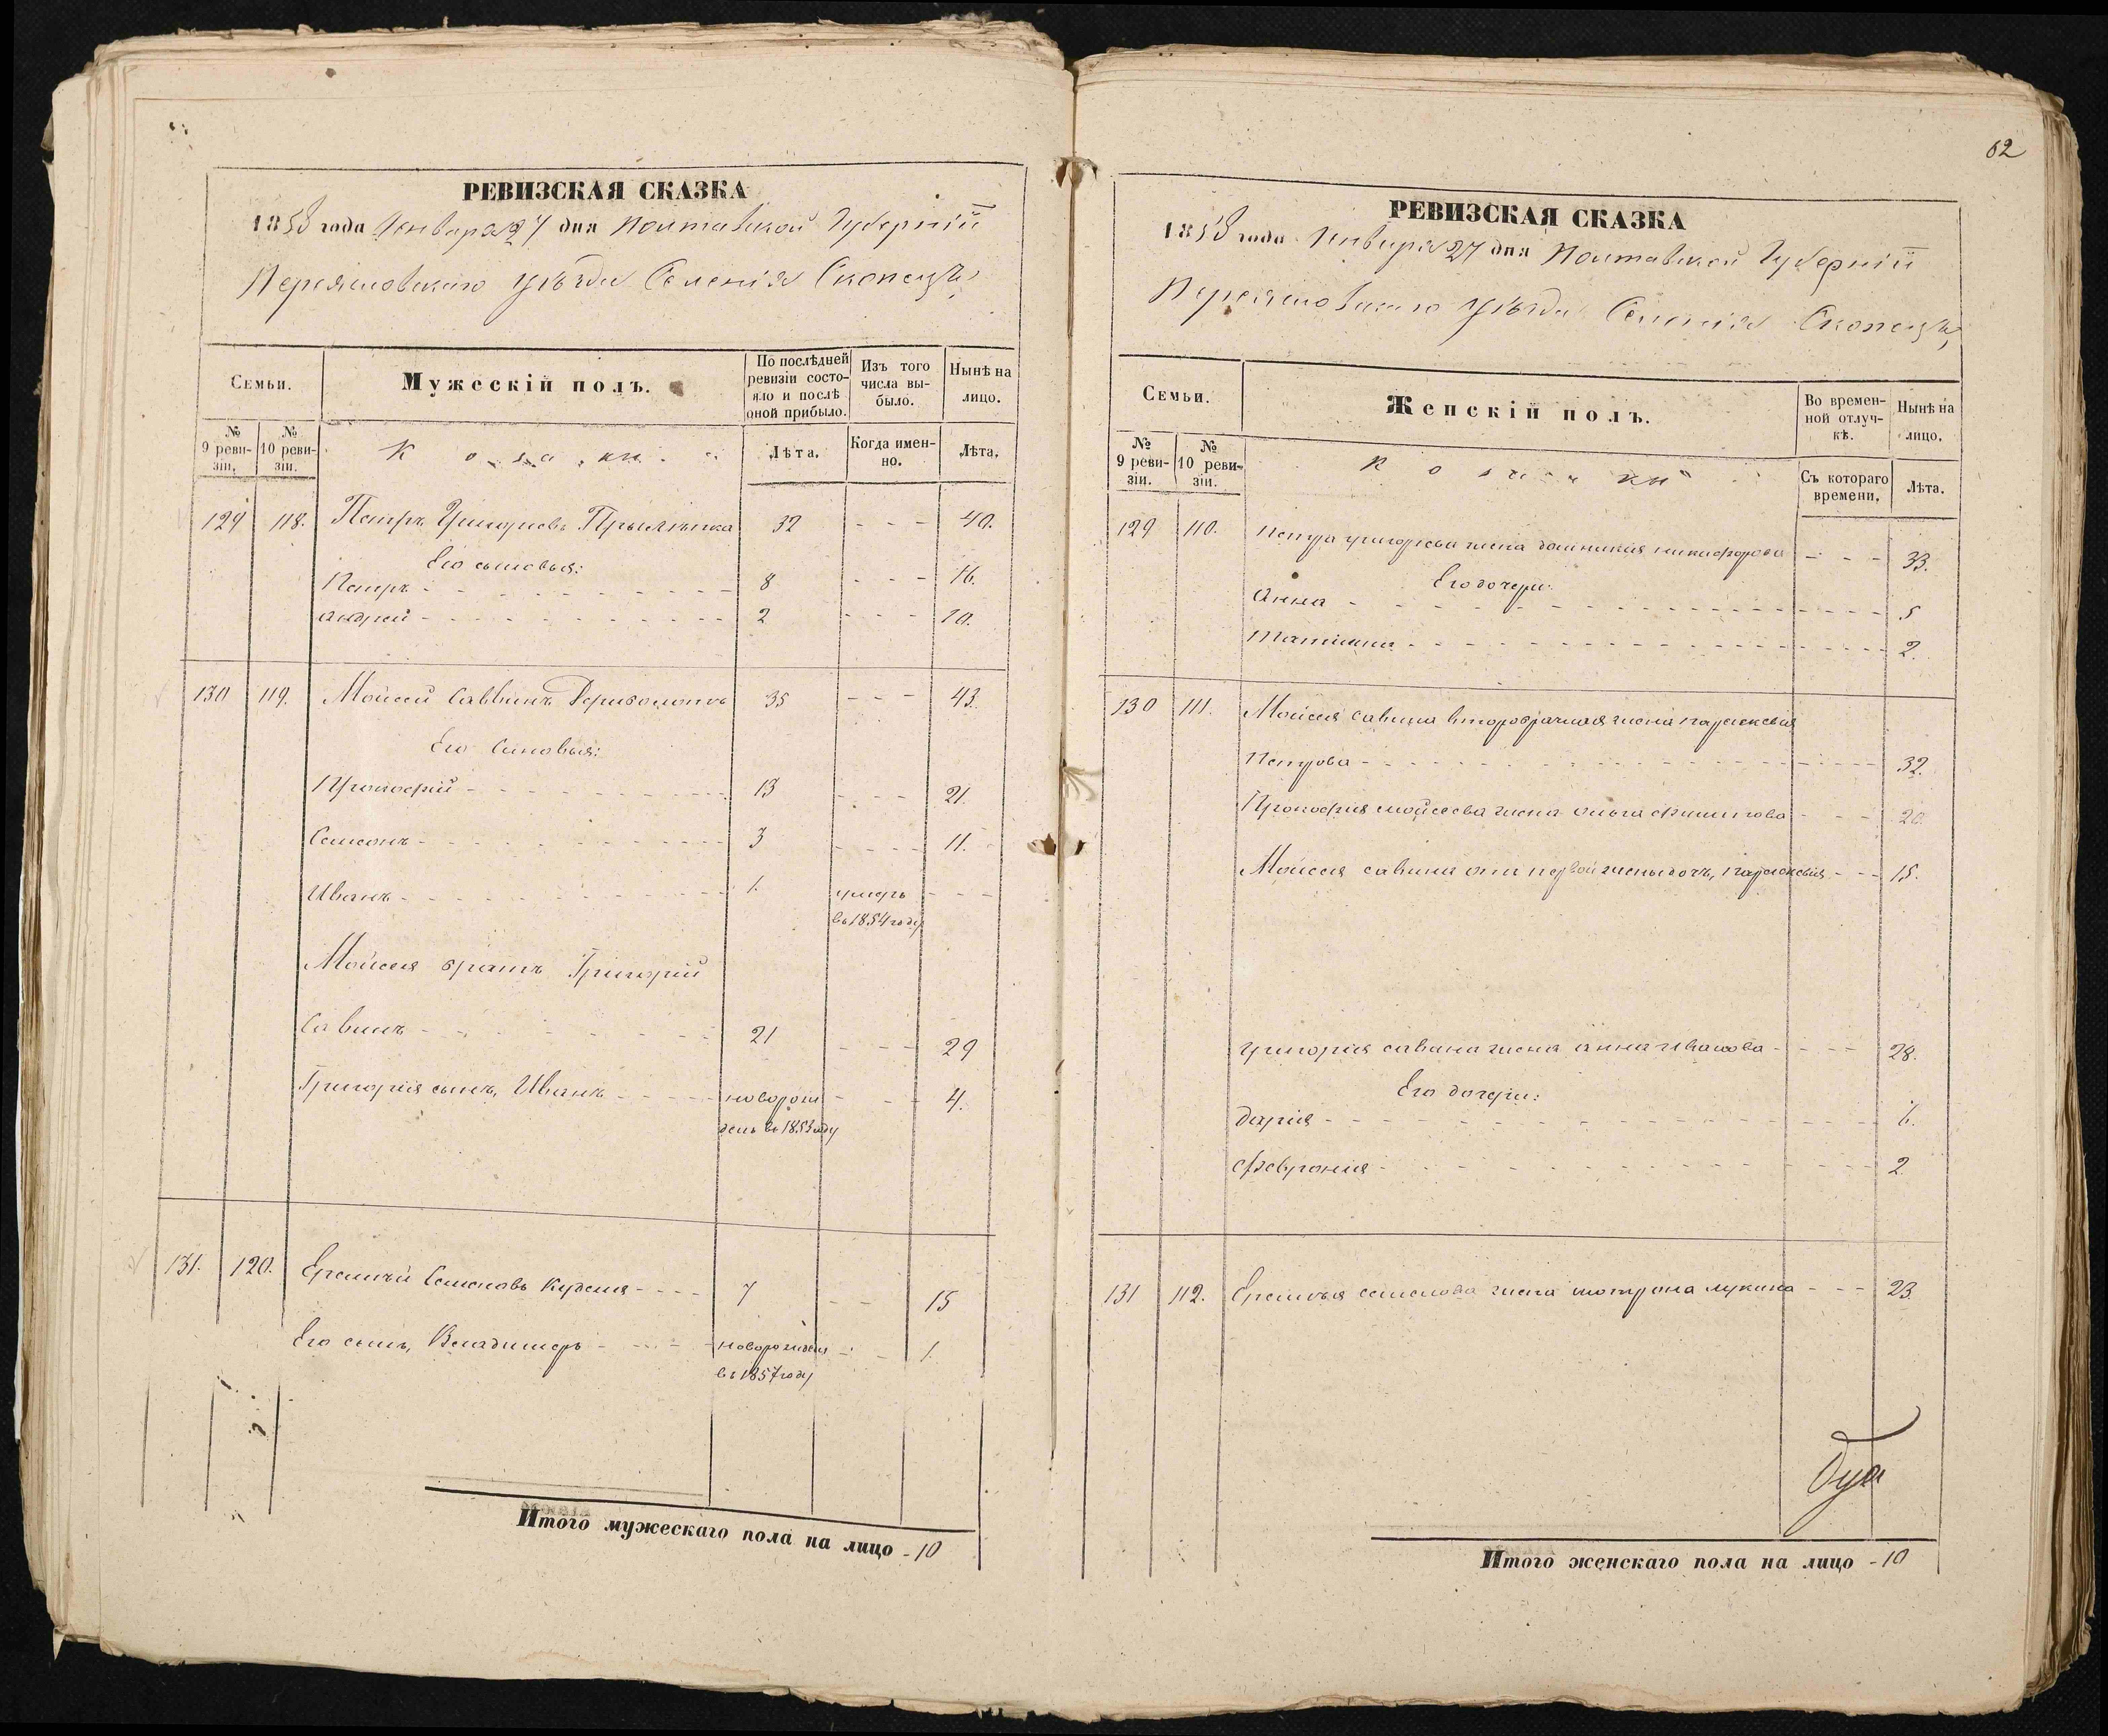 РЕВИЗСКАЯ СКАЗКА
1858 года Января 27 дня Полтавской Губерніи
Переяславскаго уѣзда Селенія Скопецъ,
Семьи.
Мужескій полъ.
По послѣдней ревизіи состояло и послѣ оной прибыло.
Изъ того числа выбыло.
Нынѣ на лицо.
№ 9 ревизіи.
№ 10 ревизіи.
Козаки
Лѣта.
Когда именно.
Лѣта.
129 118. Петръ Григорьевъ 32 - - - 40.
Его сыновья:
Петръ 8 - - - 16.
Андрей 2 - - - 10.
130 119. Мойсей Саввинъ 35 - - - 43.
Его Синовья:
Прокофій 13 - - - 21.
Семенъ 3 - - - 11.
Иванъ 1. умеръ - - -
въ 1854 году
Мойсея братъ Григорій
Савинъ 21 - - - 29
Григорія сынъ, Иванъ новорож - - - 4.
денъ въ 1853 году
131. 120. Еремѣй Семеновъ 7 - - 15
Его сынъ, Владимеръ новорожденъ - - 1.
въ 1857 году
Итого мужескаго пола на лицо - 10
62
РЕВИЗСКАЯ СКАЗКА
1858 года Января 27 дня Полтавской Губерніи
Переяславскаго уѣзда Селенія Скопецъ,
Семьи.
Женскій полъ.
Во временной отлучкѣ.
Нынѣ на лицо.
№ 9 ревизіи.
№ 10 ревизіи.
Козачки
Съ котораго времени.
Лѣта.
129 110. Петра григорьева жена домникия никифорова - - - 33.
Его дочери:
Анна 5
Татіяна 2.
130 111. Мойсея савина второбрачная жена параскевия
Петрова 32.
Прокофия мойсеева жена ольга филипова - - - 20.
Мойсея савина отъ первой жены дочь, параскевия - - - 15.
григория савина жена анна иванова - - - 28.
Его дочери:
дария 6.
Феврония 2
131 112. Еремѣя семенова жена мотрона лукина - - - 23.
Итого женскаго пола на лицо - 10